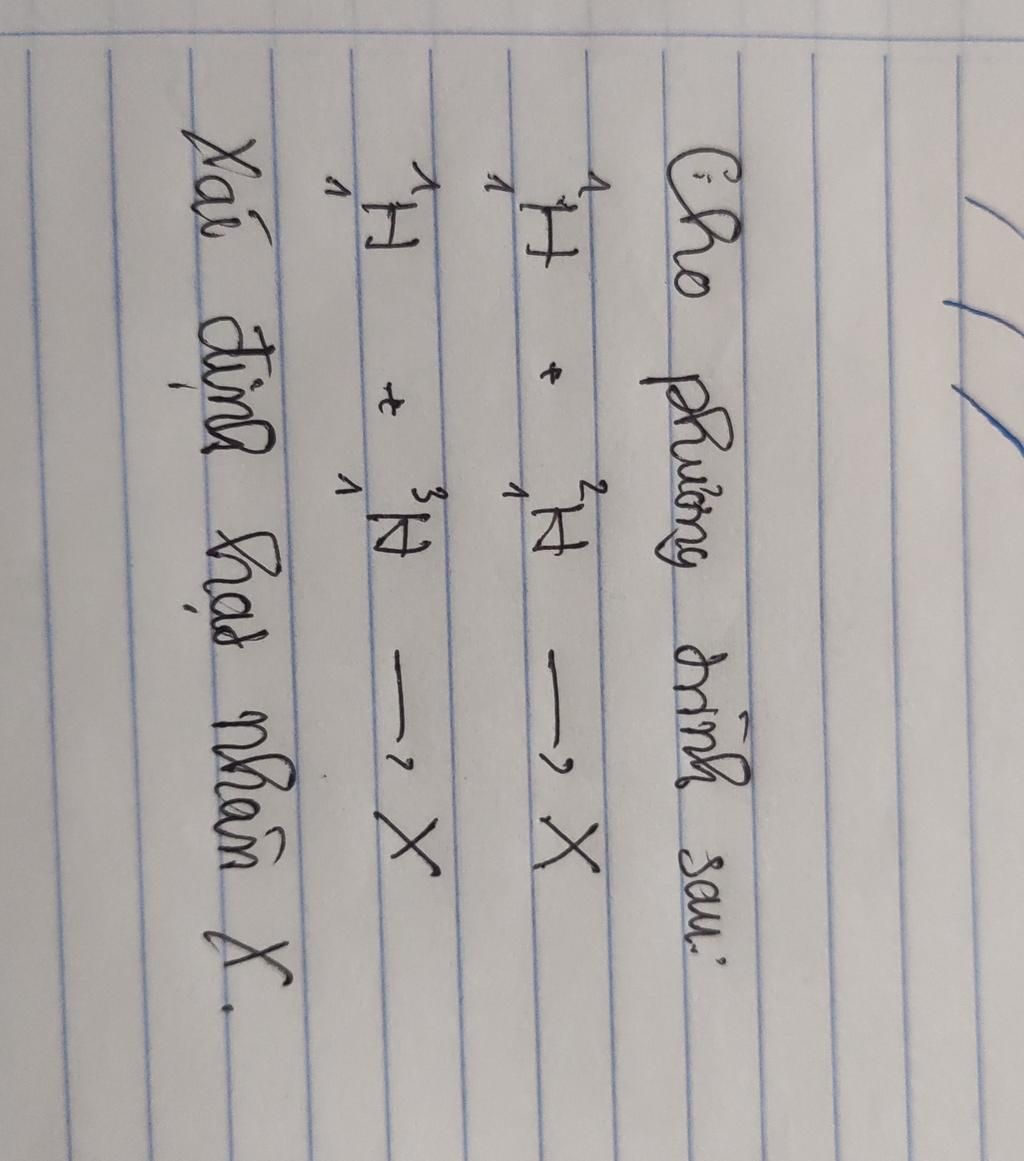 Cho phương trình sau:
¹₁H + ²₁H → X
¹₁H + ³₁H → X
Xác định hạt nhân X.